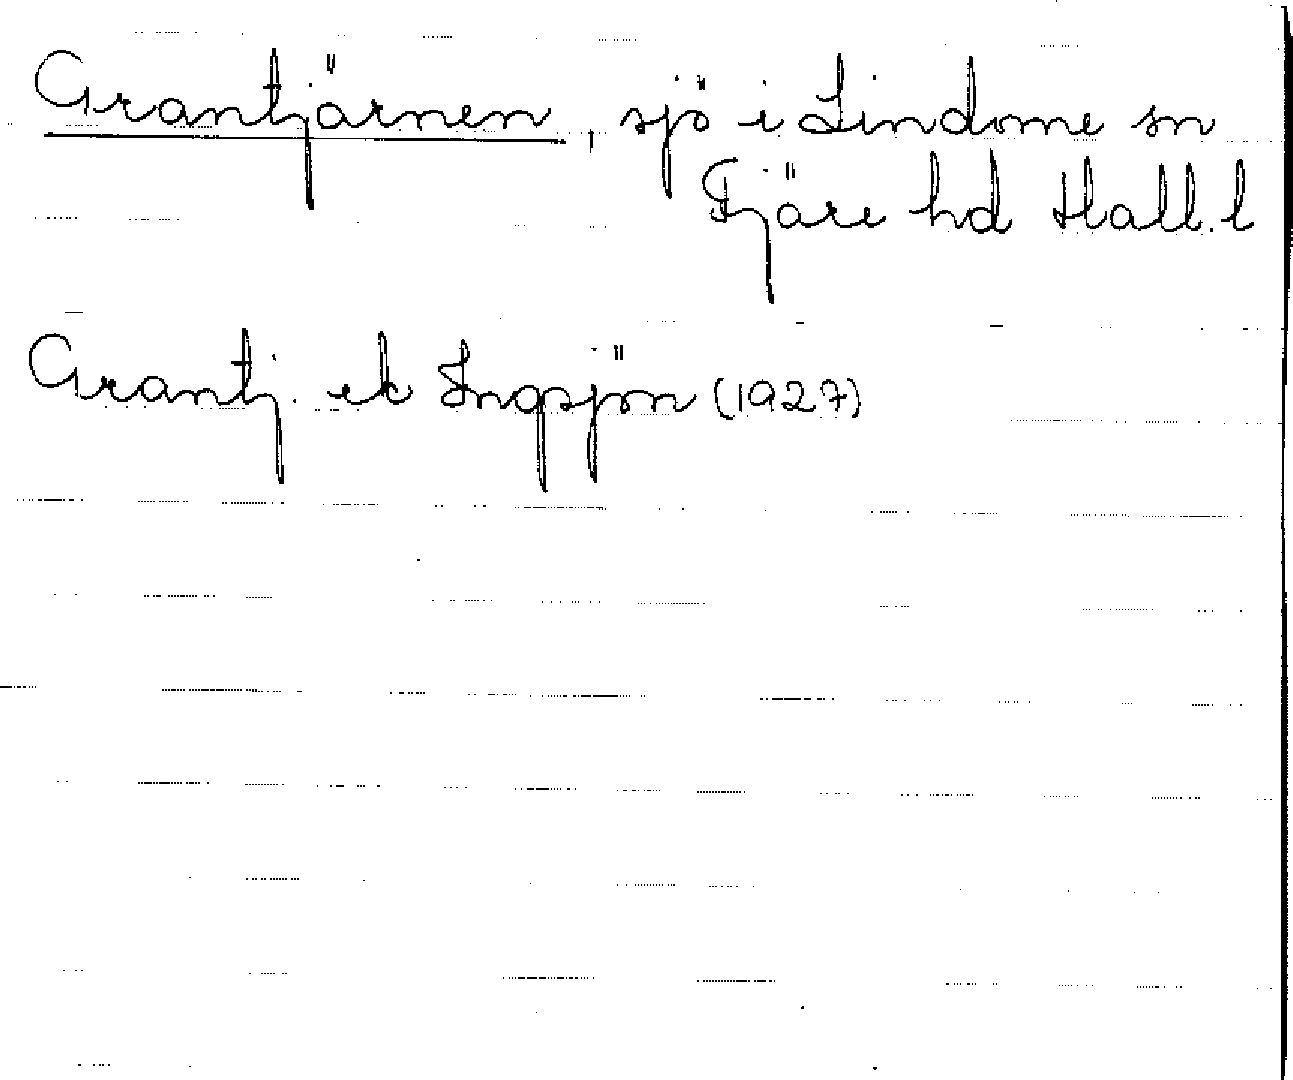 Grantjärnen, sjö i Lindome sn
Fjäre hd Hall. l
Grantj. ek Ingsjön (1927)